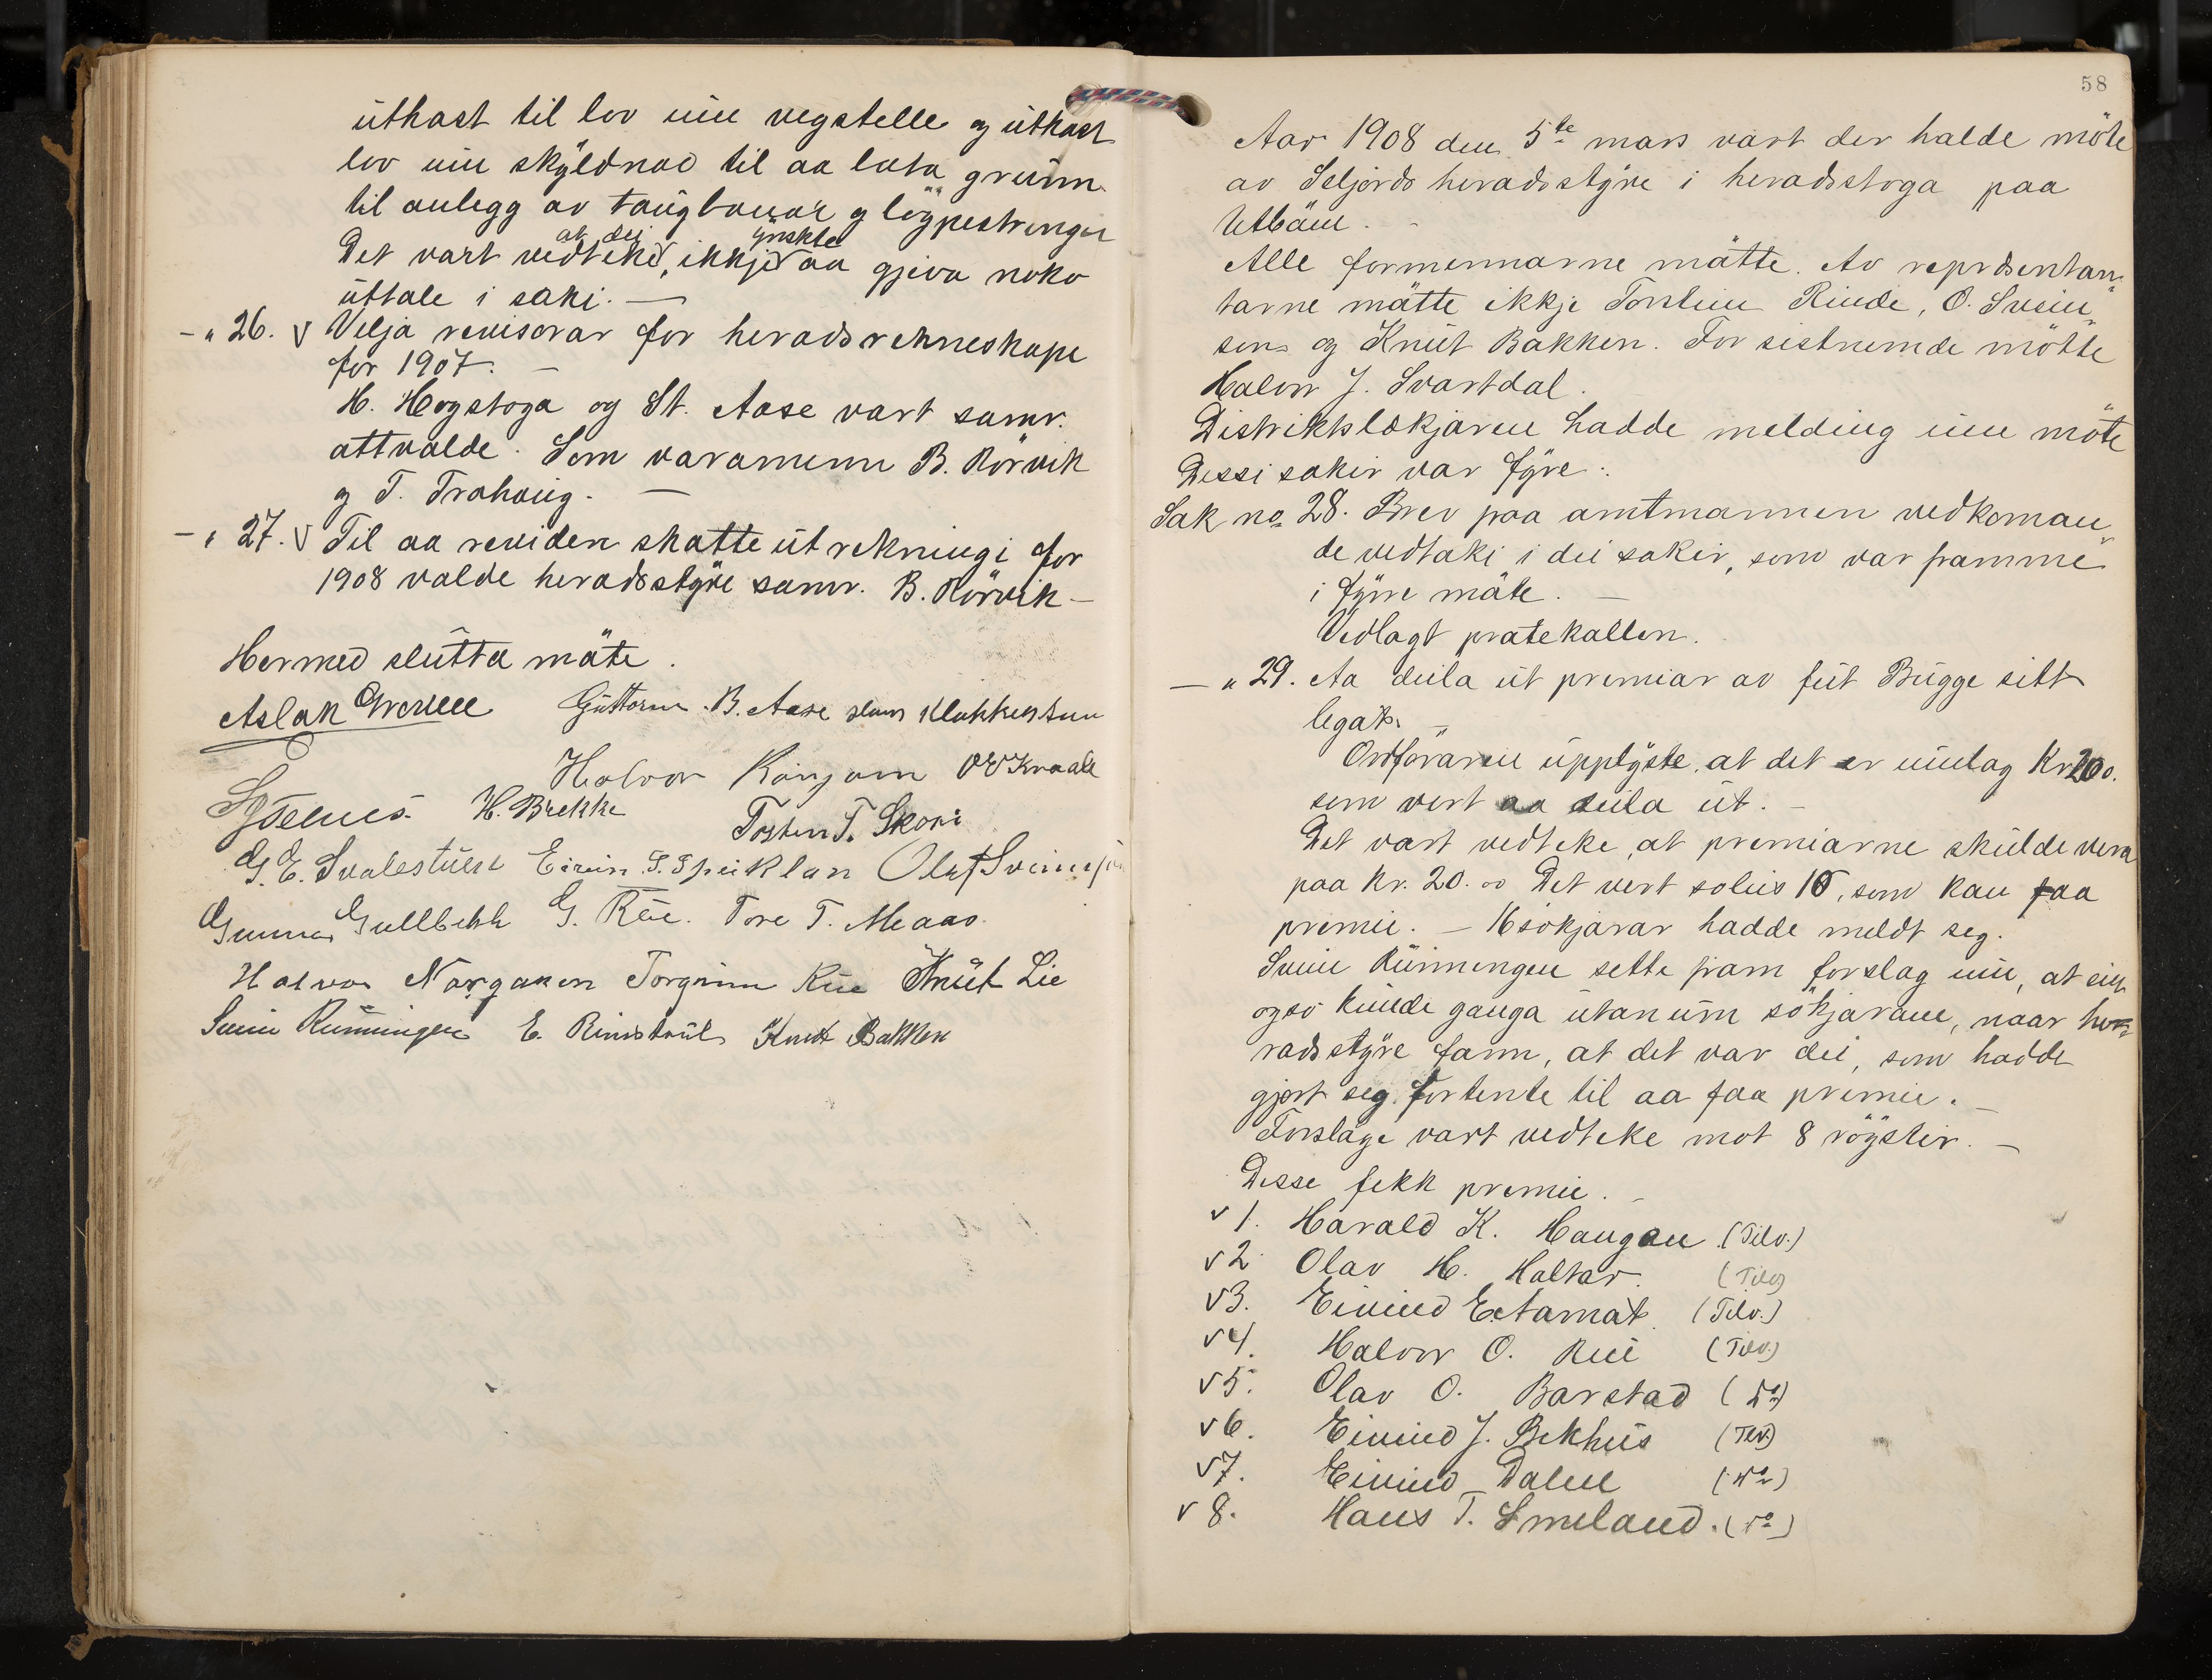 úthast til lov um vegstelle og úthast
lov um skyldnad til aa lata grunn
til anlegg av taugbanar og
Det vart vedteke, at dei ikkje ynskte aa gjeva noko
úttale i saki. —
- " 26. V Velja revisorar for heradsrekneskape
for 1907. —
H. Hogstoga og St. Aase vart samr.
attvalde. Som varamenn B. Rörvik
og T. Trahaug. —
- " 27. V Til aa revidera skatteútrekningi for
1908 valde heradsstyre samr. B. Rörvik —
Hermed slútta möte.
Aslak Guttorm B. Aase
Halvor
H. Brekke Tosten T. Skori
G. E. Svalestuen Olaf Sveinsson
Gunnar Gullbekk G. Rue. Tore T. Maas.
Halvor Torgrim Rue Knút Lie
Svein Rúnningen E. Rindstúl Knut Bakken
58
Aar 1908 den 5te mars vart der halde möte
av Seljords heradsstyre i heradsstoga paa
Utböen. -
Alle formennarne mötte. Av representan-
tarne mötte ikkje Tovleiv Rinde, O. Svein-
sen og Knút Bakken. For sistnemde mötte
Halvor J. Svartdal.
Distriktslækjaren hadde melding um möte
Dessi sakir var fyre:
Sak no 28. Brev paa amtmannen vedkoman-
de vedtaki i dei sakir, som var framme
i fyrre möte. —
Vedlagt protekollen.
— " 29. Aa deila út premiar av fút Bugge sitt
legat. —
Ordföraren upplyste, at det er umlag Kr 200.
som vert aa deila út. -
Det vart vedteke, at premiarne skulde vera
paa Kr. 20.00 Det vert soleis 10, som kan faa
premie. — 16 sökjarar hadde meldt seg.
Svein Rúnningen sette fram forslag um, at ein
ogso kunde ganga útanúm sökjarane, naar he-
radsstyre fann, at det var dei, som hadde
gjort seg fortente til aa faa premie. —
Forslage vart vedteke mot 8 röyster. —
Desse fekk premie. -
v 1. Harald K. Haugen (Tilv.)
v 2 Olav H. Haltar. (Tilv)
v 3. Eivind (Tilv.)
v 4. Halvor O. Rui (Tilv.)
v 5. Olav O. Barstad (do)
v 6. Eivind J. Bekhús (Tilv.)
v 7. Eivind Dalen (do)
v 8. Hans T. Smeland. (do)